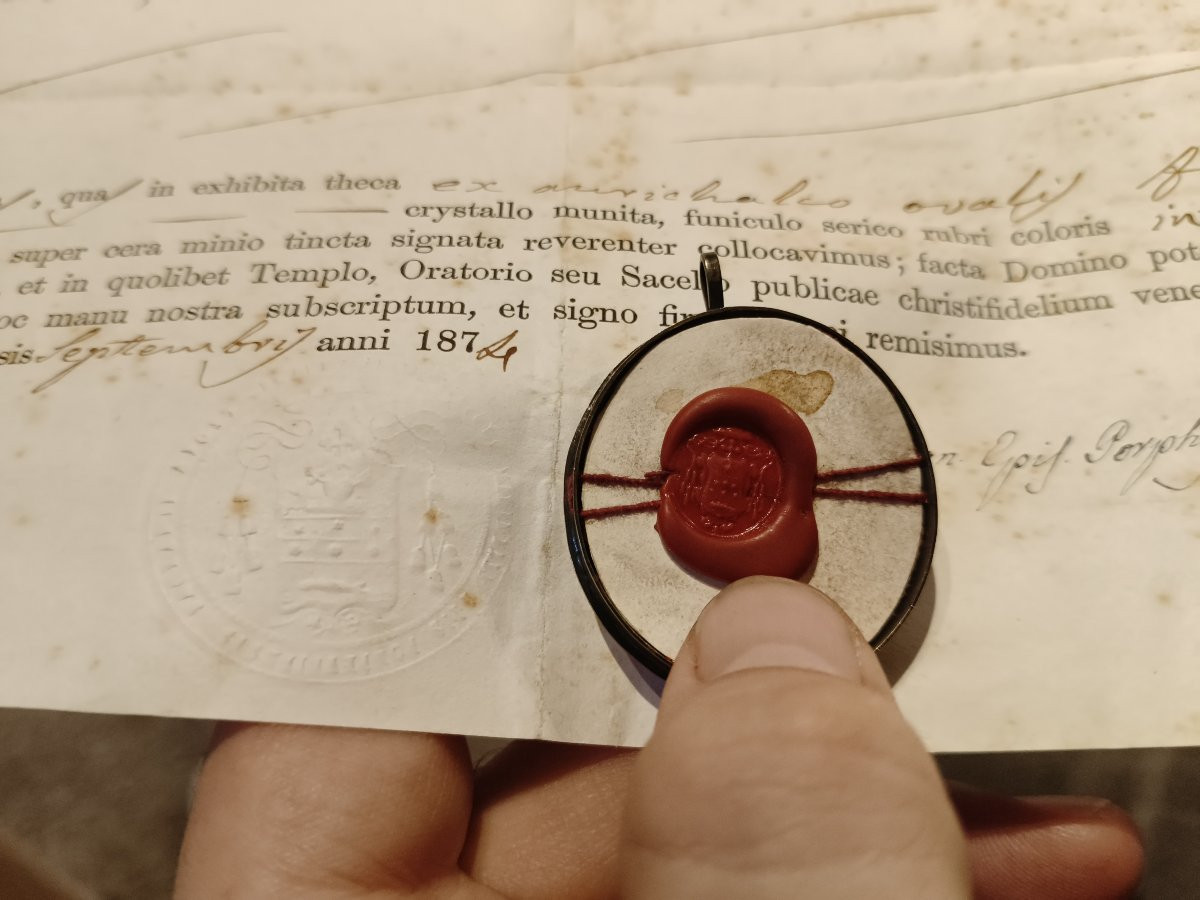 , quas in exhibita theca ex aurichalco ovalis
crystallo munita, funiculo serico rubri coloris in
super cera minio tincta signata reverenter collocavimus; facta Domino pot
et in quolibet Templo, Oratorio seu Sacello publicae christifidelium vene
oc manu nostra subscriptum, et signo fir i remisimus.
sis Septembris anni 1874
n. Epis. Porph